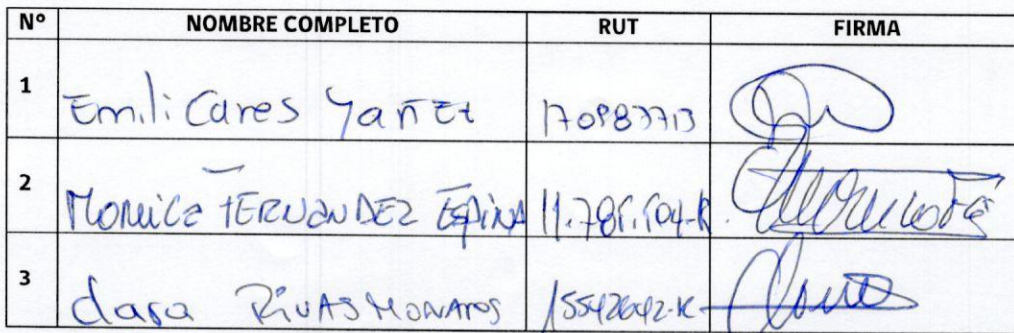 N° NOMBRE COMPLETO RUT FIRMA
1 Emili Cares Yañez 170987713
2 Monica FERNANDEZ ESPINA
3 Clara RIVAS 15542642-K